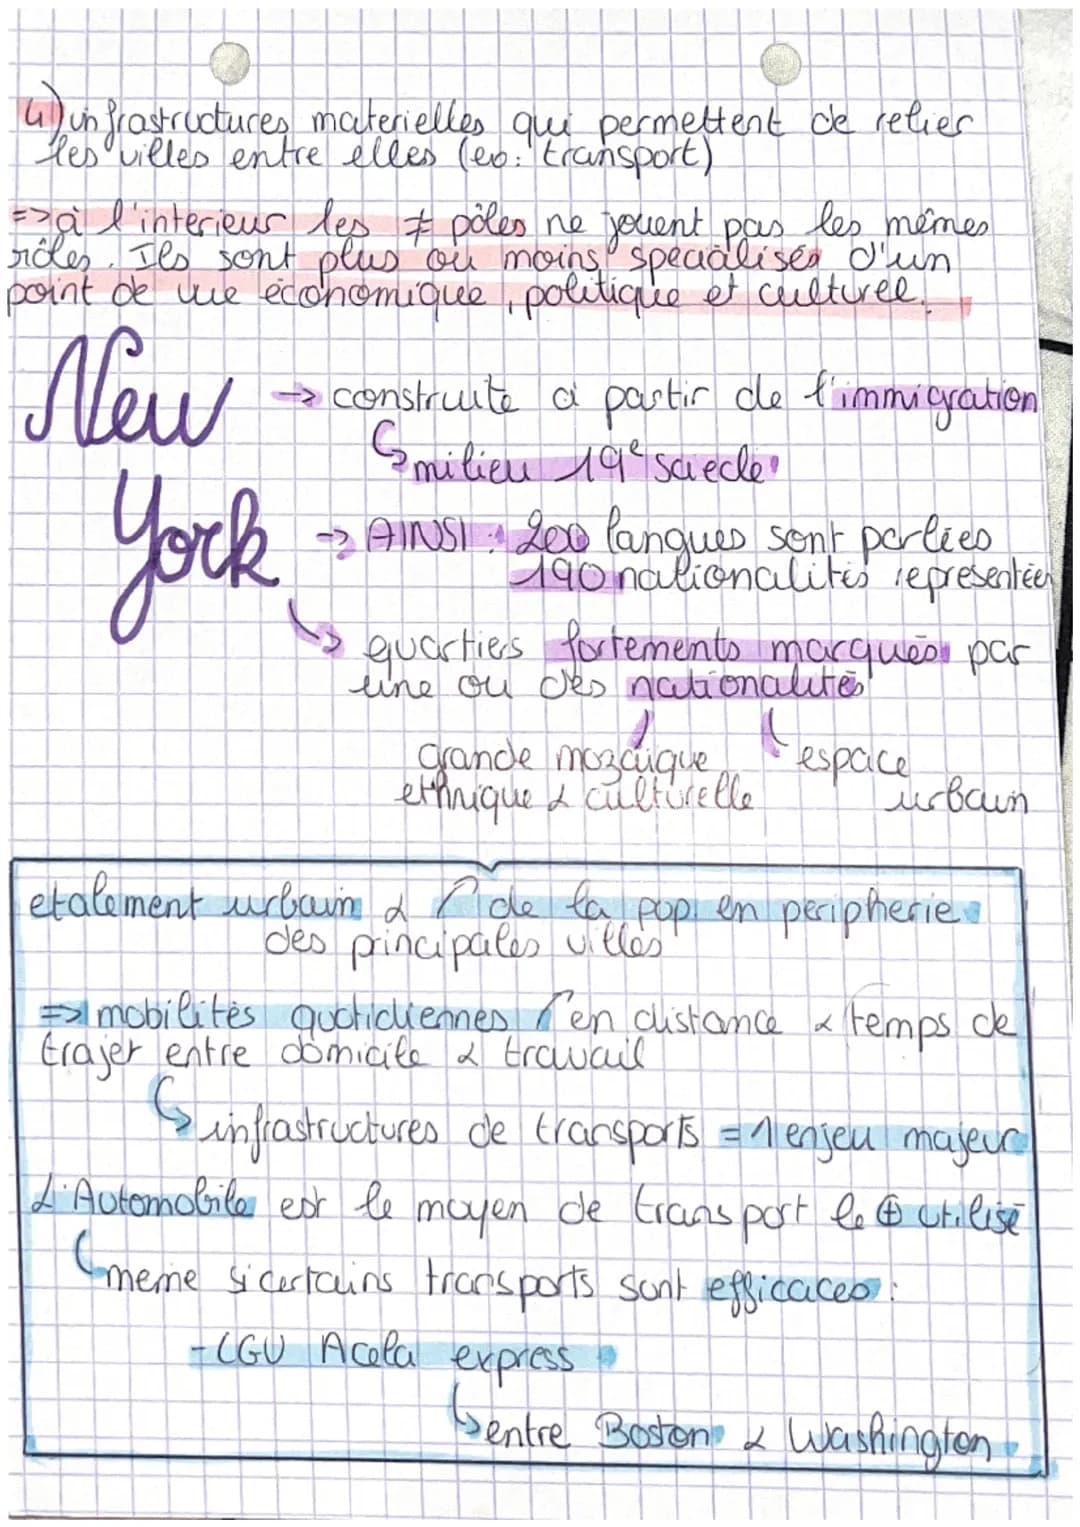 4) infrastructures materielles qui permettent de relier
les villes entre elles (ex: transport)
=> à l'interieur les ≠ pôles ne jouent pas les mêmes
rôles. Ils sont plus ou moins spécialisés d'un
point de vue économique, politique et culturel.
New
York
→ construite à partir de l'immigration
↳ milieu 19e saecle
→ AINSI : 200 langues sont parlées
190 nationalités représentées
↳ quartiers fortements marqués par
une ou des nationalités
grande mozaïque
ethnique & culturelle
espace
urbain
etalement urbain & ↗ de la pop en peripherie
des principales villes
=> mobilités quotidiennes ↗ en distance & temps de
trajet entre domicile & travail
↳ infrastructures de transports = 1 enjeu majeur
L'Automobile est le moyen de transport le ⊕ utilisé
↳ meme si certains transports sont efficaces :
- LGV Acela express
↳ entre Boston & Washington